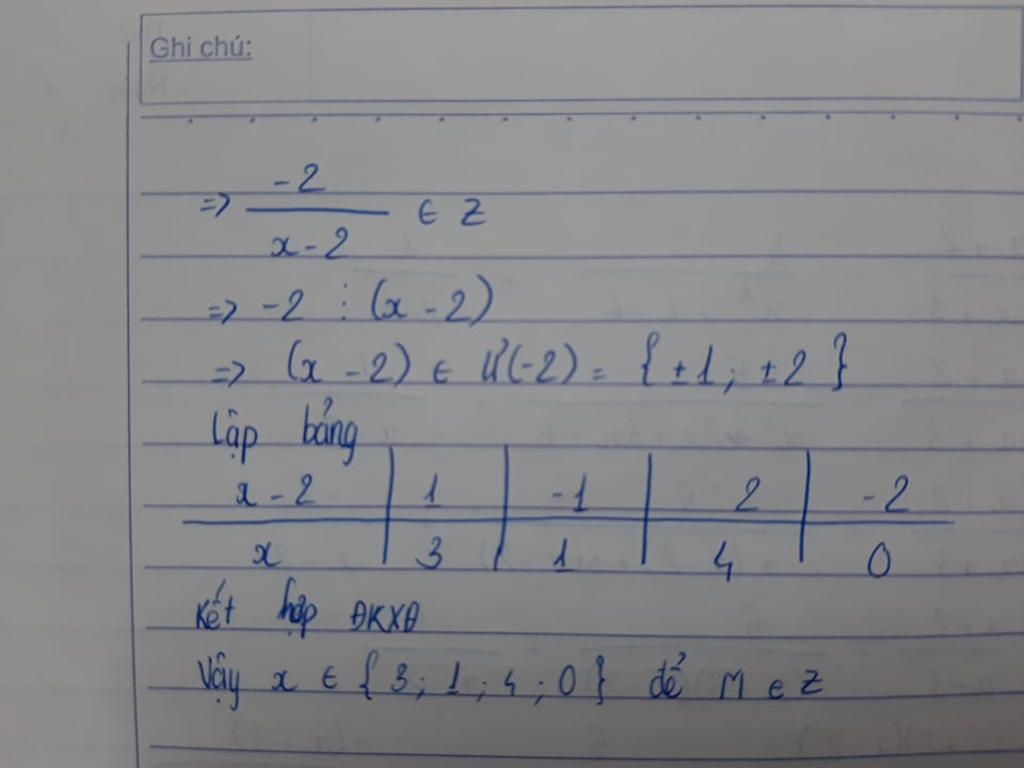 Ghi chú:
=> -2 / x - 2 ∈ Z
=> -2 ⋮ (x - 2)
=> (x - 2) ∈ Ư(-2) = { ±1; ±2 }
Lập bảng
x - 2 | 1 | -1 | 2 | -2
x | 3 | 1 | 4 | 0
Kết hợp ĐKXĐ
Vậy x ∈ { 3; 1; 4; 0 } để M ∈ Z